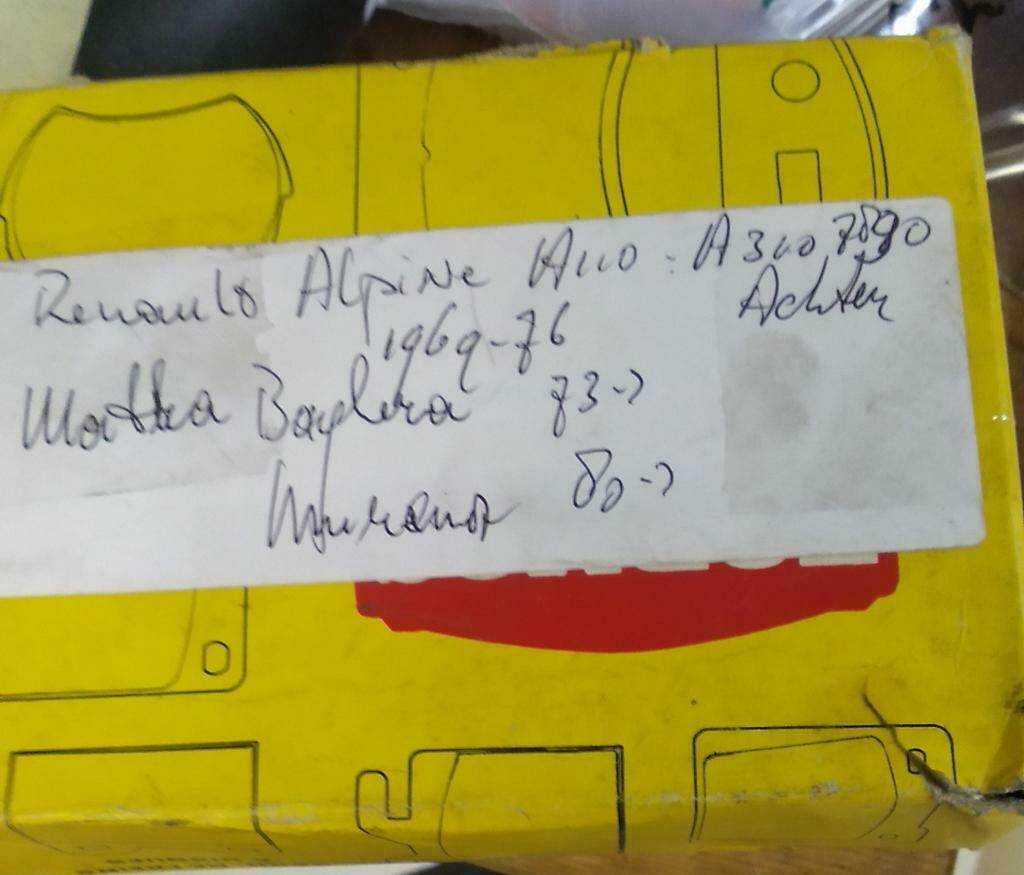 Renault Alpine A110 : A310 7890
1969-76 Achter
Matra Baghera 73->
Murena 80->